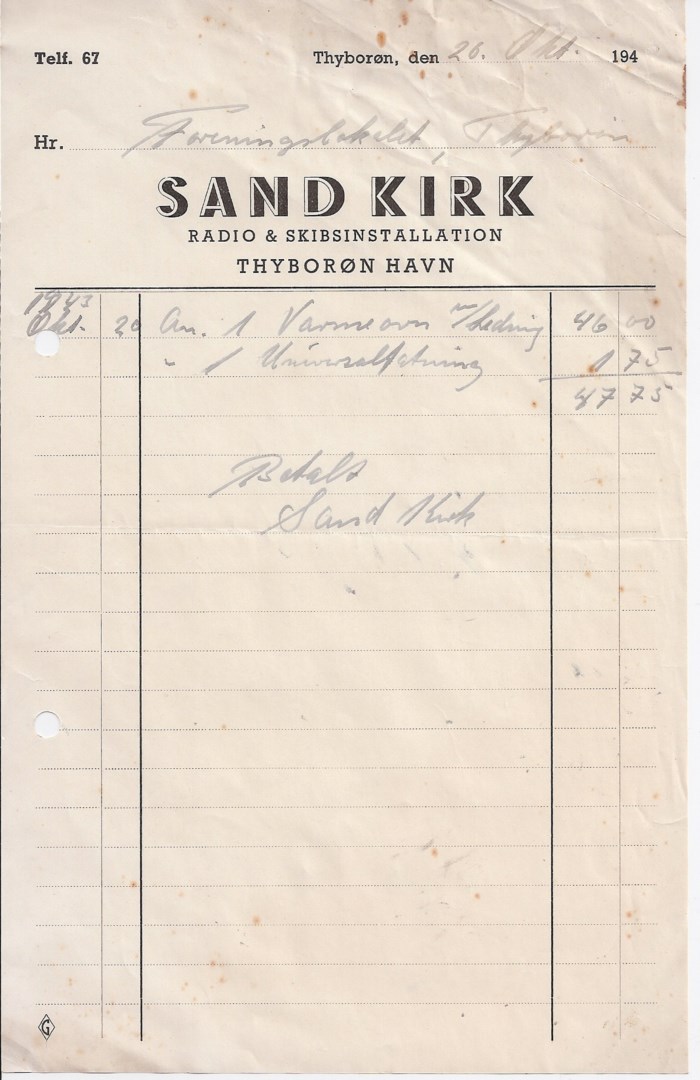 Telf. 67
Thyborøn, den 26. Okt. 194
Hr. Foreningslokalet, Thyborøn
SAND KIRK
RADIO & SKIBSINSTALLATION
THYBORØN HAVN
1943
Okt. 20 An. 1 Varmeovn m/Ledning 46 00
" 1 Universalfatning 1 75
47 75
Betalt
Sand Kirk
G